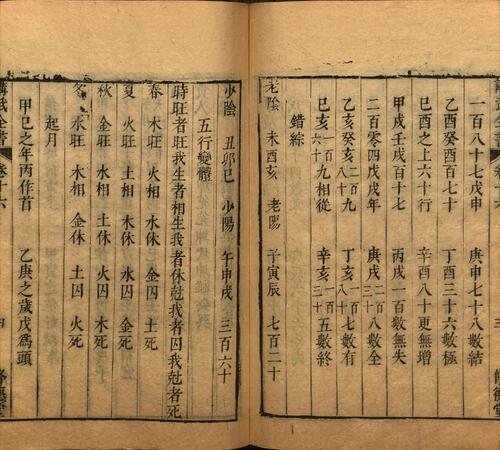 一百八十七戊申 庚申七十八數結
乙酉癸酉百七十 丁酉三十六數極
己酉之上六十行 辛酉八十更無增
甲戌壬戌百十八 丙戌一百數無失
二百零四戊戌年 庚戌 數全
乙亥癸亥 丁亥 數有
己亥 相從 辛亥 癸亥 五數終
錯綜
老陰 未酉亥 老陽 子寅辰 七百二十
少陰 丑卯巳 少陽 午申戌 三百六十
五行變體
時旺者旺我生者相生我者休尅我者囚我尅者死
春 木旺 火相 水休 金囚 土死
夏 火旺 土相 木休 水囚 金死
秋 金旺 水相 土休 火囚 木死
冬 水旺 木相 金休 土囚 火死
起月
甲巳之年丙作首 乙庚之歲戊爲頭
全書 卷十六 四